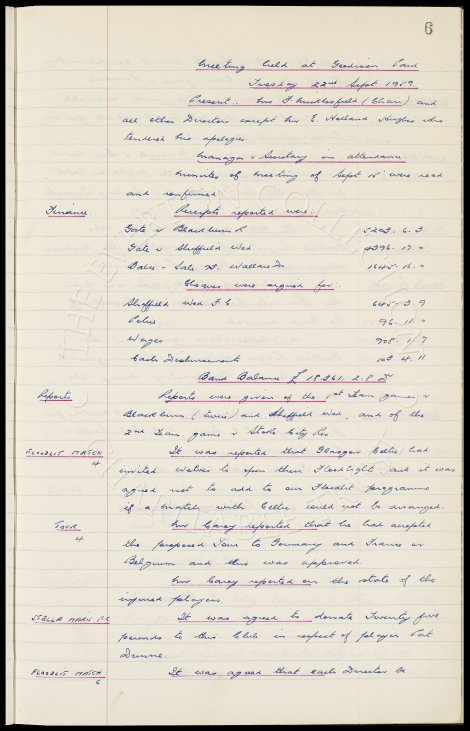 6
Meeting held at Goodison Park
Tuesday 22nd Sept 1959
Present:. Mr F. Micklesfield (Chair) and
all other Directors except Mr E. Holland Hughes who
tendered his apologies.
Manager & Secretary in attendance.
Minutes of Meeting of Sept 15 were read
and confirmed
Finance Receipts reported were:.
Gate v Blackburn R 5203. 6. 3
Gate v Sheffield Wed 4396. 17. 0
Balce - Sale Wallace Dr 1645. 16. 0
Cheques were signed for:.
Sheffield Wed F.C. 645. 3. 9
Police 96. 11. 0
Wages 908. 1. 7
Cash Disbursements 4. 11
Bank Balance £ 18261. 2. 8 Dr
Reports Reports were given of the 1st Team games v
Blackburn (twice) and Sheffield Wed. and of the
2nd Team game v Stoke City Res
FLOODLIT MATCH It was reported that Glasgow Celtic had
4
invited Wolves to open their Floodlight and it was
agreed not to add to our Floodlit programme
if a match with Celtic could not be arranged.
TOUR Mr Carey reported that he had accepted
4
the proposed Tour to Germany and France or
Belgium and this was approved.
Mr Carey reported on the state of the
injured players
STELLA MARIS F.C. It was agreed to donate Twenty five
pounds to this Club in respect of player Pat
Dunne.
FLOODLIT MATCH It was agreed that each Director be
6
THE EVERTON COLLECTION